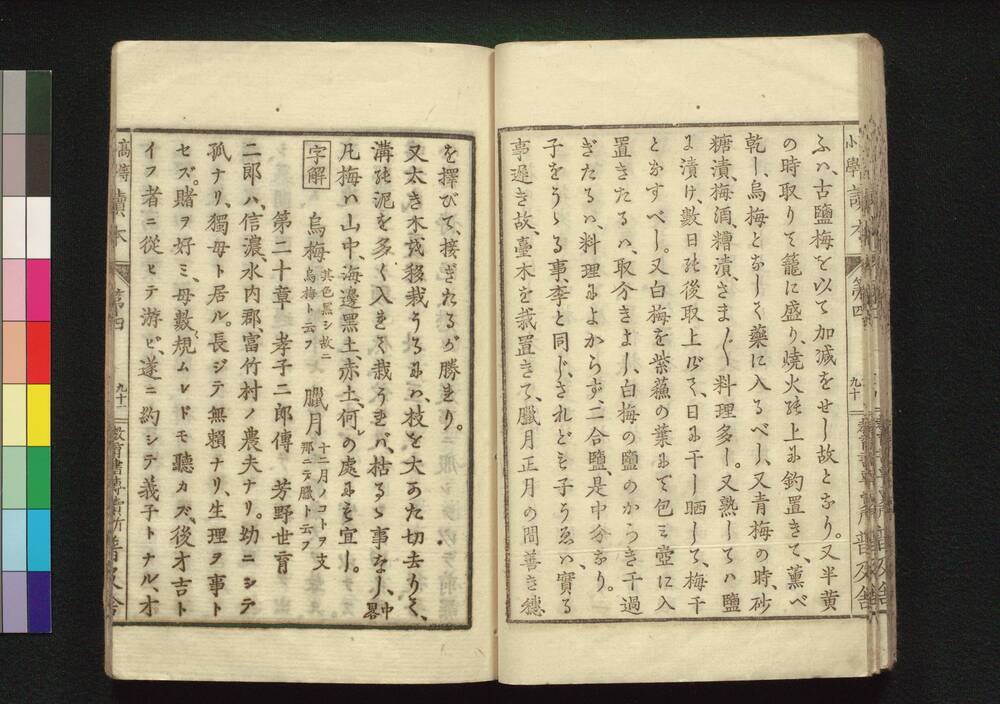 小學讀本
第四
九十
教育書專賣所
普及舍
ふハ、古鹽梅を以て加減をせし故となり。又半黄
の時取りて籠に盛り、燒火の上に釣置きて、薫べ
乾し、烏梅となしく藥に入るべし、又青梅の時、砂
糖漬、梅酒、糟漬、さま〴〵料理多し。又熟してハ鹽
に漬け、數日の後取上げて、日に干し晒して、梅干
となすべし。又白梅を紫蘓の葉にて包ミ壺に入
置きたるハ、取分きよし、白梅の鹽のからき干過
ぎたるハ、料理によからず、二合鹽、是中分なり。
子をうゝる事、李と同じ、されども子うゑハ、實る
事遲き故、臺木を栽置きて、臘月正月の間善き穗
を擇びて、接ぎたるが勝れり。
又太き木を移栽うるにハ、枝を大かた切去りて、
溝の泥を多く入れて栽うれバ枯るゝ事なし、中畧
凡梅ハ山中、海邊黑土、赤土、何レの處にも宜し。
字解 烏梅 其色黑シ故ニ烏梅ト云フ 臘月 十二月ノコトヲ支那ニテ臘ト云フ
第二十章 孝子二郎傳 芳野世育
二郎ハ、信濃水内郡、富竹村ノ農夫ナリ。幼ニシテ
孤ナリ、獨母ト居ル。長ジテ無賴ナリ、生理ヲ事ト
セズ。賭ヲ好ミ、母數〻規ムレドモ聽カズ、後才吉ト
イフ者ニ從ヒテ游ビ、遂ニ約シテ義子トナル、才
高等讀本
第四
九十一
教育書專賣所
普及舍